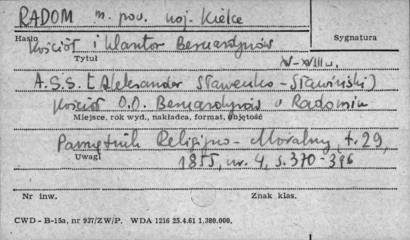 RADOM m. pow. woj. Kielce
Hasło
Sygnatura
Kościół i klasztor Bernardynów
Tytuł
XV-XVIII w.
A.S.S. [Aleksander Stawenko-Stawiński]
Kościół O.O. Bernardynów w Radomiu
Miejsce, rok wyd., nakładca, format, objętość
Pamiętnik Religijno-Moralny, t. 29,
Uwagi
1855, nr. 4, s. 370-396
Nr inw.
Znak klas.
CWD - B-15a, nr 937/ZW/P. WDA 1216 25.4.61 1,380.000.